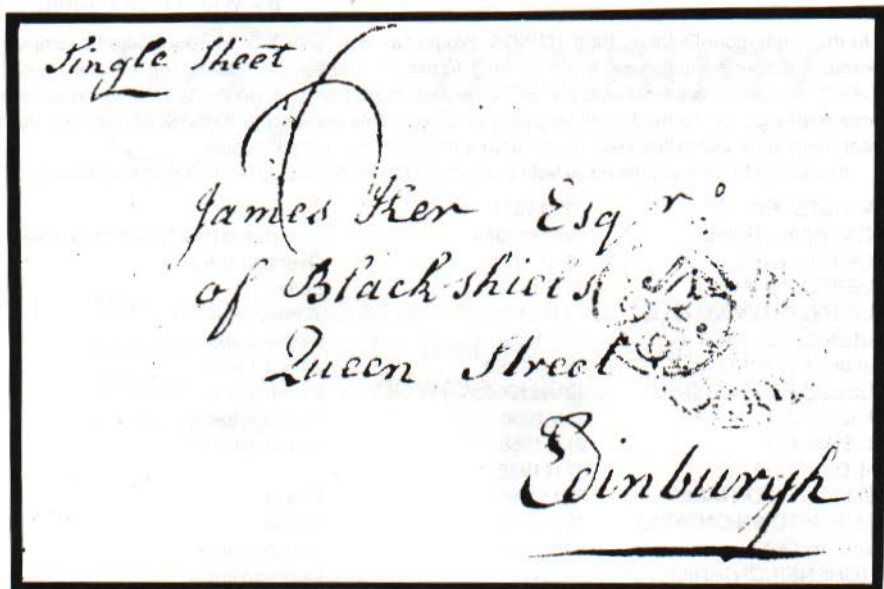 Single Sheet
James Ker Esqr.
of Blackshiels
Queen Street
Edinburgh